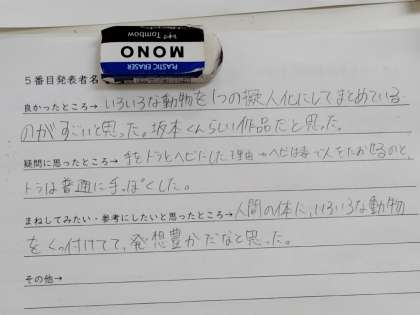 Tombow
MONO
PLASTIC ERASER
5番目発表者名
良かったところ→いろいろな動物を1つの擬人化にしてまとめている
のがすごいと思った。坂本くんらしい作品だと思った。
疑問に思ったところ→手をトラとヘビにした理由→ヘビは毒で人をたおせるのと、
トラは普通に手っぽくした。
まねしてみたい・参考にしたいと思ったところ→人間の体に、いろいろな動物
をくっ付けてて、発想豊かだなと思った。
その他→